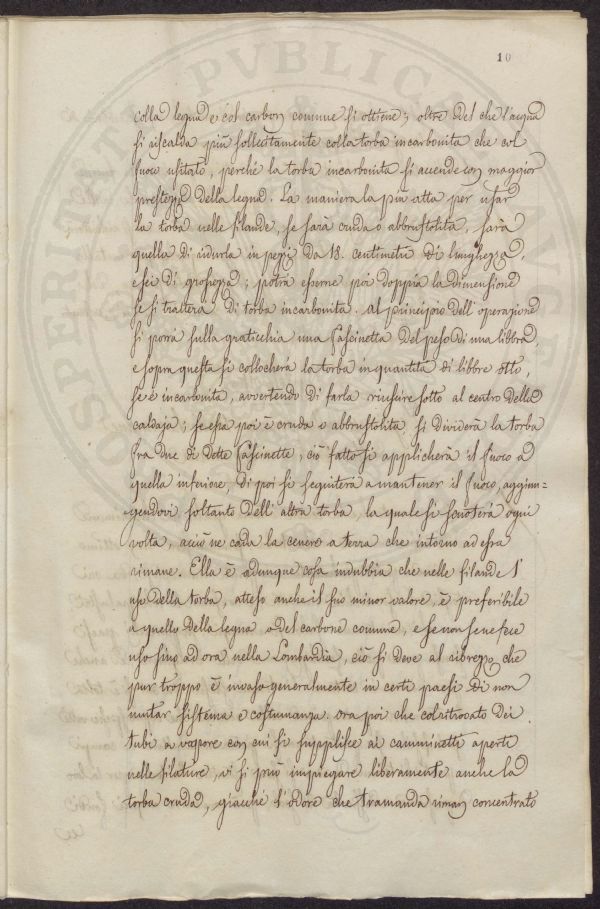 10
colla legna e col carbon comune si ottiene; oltre del che l'acqua
si riscalda più sollecitamente colla torba incarbonita che col
fuoco usitato, perchè la torba incarbonita si accende con maggior
prestezza della legna. La maniera la più atta per usar
la torba nelle filande, se sarà cruda o abbrustolita, sarà
quella di ridurla in pezzi da 18. centimetri di lunghezza,
e sei di grossezza; potrà esserne poi doppia la dimensione
se si tratterà di torba incarbonita. Al principio dell'operazione
si porrà sulla graticchia una fascinetta del peso di una libbra,
e sopra questa si collocherà la torba in quantità di libbre otto,
se è incarbonita, avvertendo di farla riuscire sotto al centro della
caldaja; se essa poi è cruda o abbrustolita si dividerà la torba
fra due di dette fascinette; ciò fatto si applicherà il fuoco a
quella inferiore, di poi si seguiterà a mantener il fuoco, aggiun=
gendovi soltanto dell'altra torba, la quale si scuoterà ogni
volta, acciò ne cada la cenere a terra che intorno ad essa
rimane. Ella è adunque cosa indubbia che nelle filande l'
uso della torba, atteso anche il suo minor valore, è preferibile
a quello della legna o del carbone comune, e se non se ne fece
uso fino ad ora nella Lombardia, ciò si deve al ribrezzo che
pur troppo è invaso generalmente in certi paesi di non
mutar sistema e costumanza. Ora poi che col ritrovato dei
tubi a vapore con cui si supplisce ai camminetti aperti
nelle filature, vi si può impiegare liberamente anche la
torba cruda, giacchè l'odore che tramanda riman concentrato